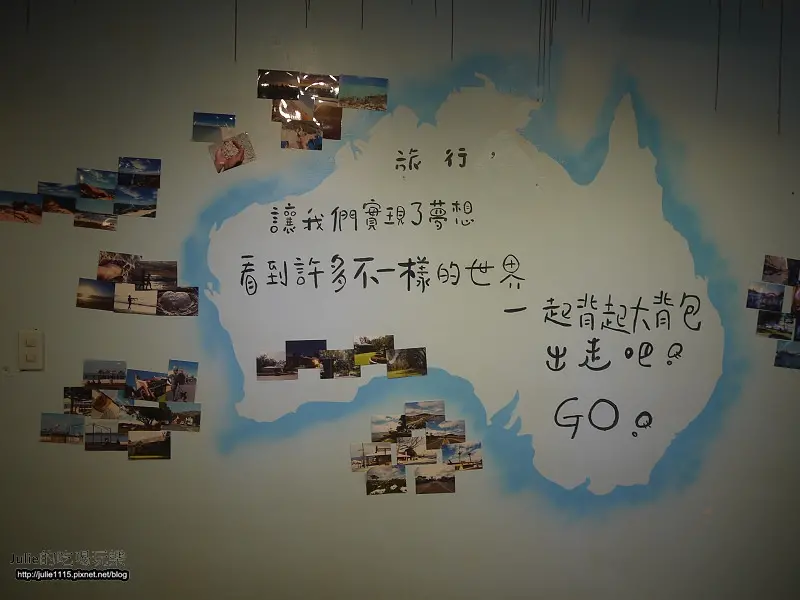 旅行，
讓我們實現了夢想
看到許多不一樣的世界
一起背起大背包
出走吧。
GO。
Julie的吃喝玩樂
http://julie1115.pixnet.net/blog